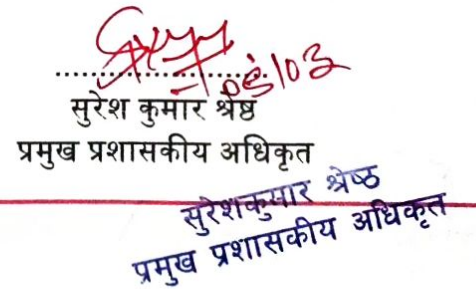 सुरेश कुमार श्रेष्ठ
प्रमुख प्रशासकीय अधिकृत
सुरेशकुमार श्रेष्ठ
प्रमुख प्रशासकीय अधिकृत